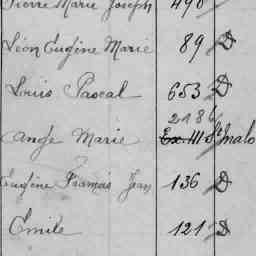 Pierre Marie Joseph 490
Léon Eugène Marie 89 D
Louis Pascal 653 D
2186
Ange Marie Ex. III St Malo
Eugène Francois Jean 136 D
Emile 121 D